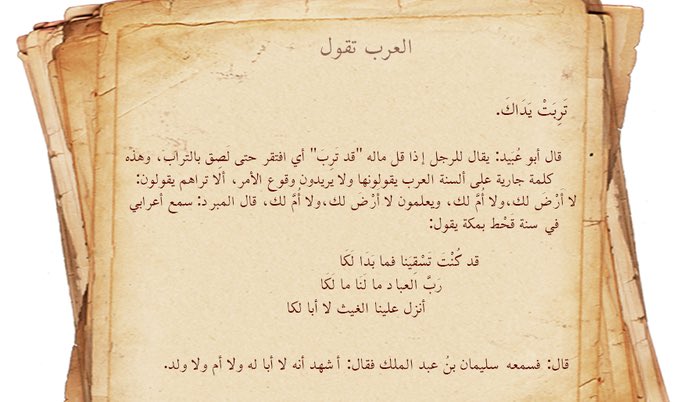 العرب تقول
تَرِبَتْ يَدَاكَ.
قال أبو عُبَيد: يقال للرجل إذا قل ماله "قد ترِبَ" أي افتقر حتى لَصِق بالتراب، وهذه
كلمة جارية على ألسنة العرب يقولونها ولا يريدون وقوع الأمر، ألا تراهم يقولون:
لا أَرْضَ لك،ولا أُمَّ لك، ويعلمون لا أرْضَ لك،ولا أُمَّ لك، قال المبرد: سمع أعرابي
في سنة قحْط بمكة يقول:
قد كُنْتَ تَسْقِيَنا فما بَدَا لَكَا
رَبَّ العباد ما لَنَا ما لَكَا
أنزل علينا الغيث لا أبا لكا
قال: فسمعه سليمان بنُ عبد الملك فقال: أشهد أنه لا أبا له ولا أم ولا ولد.